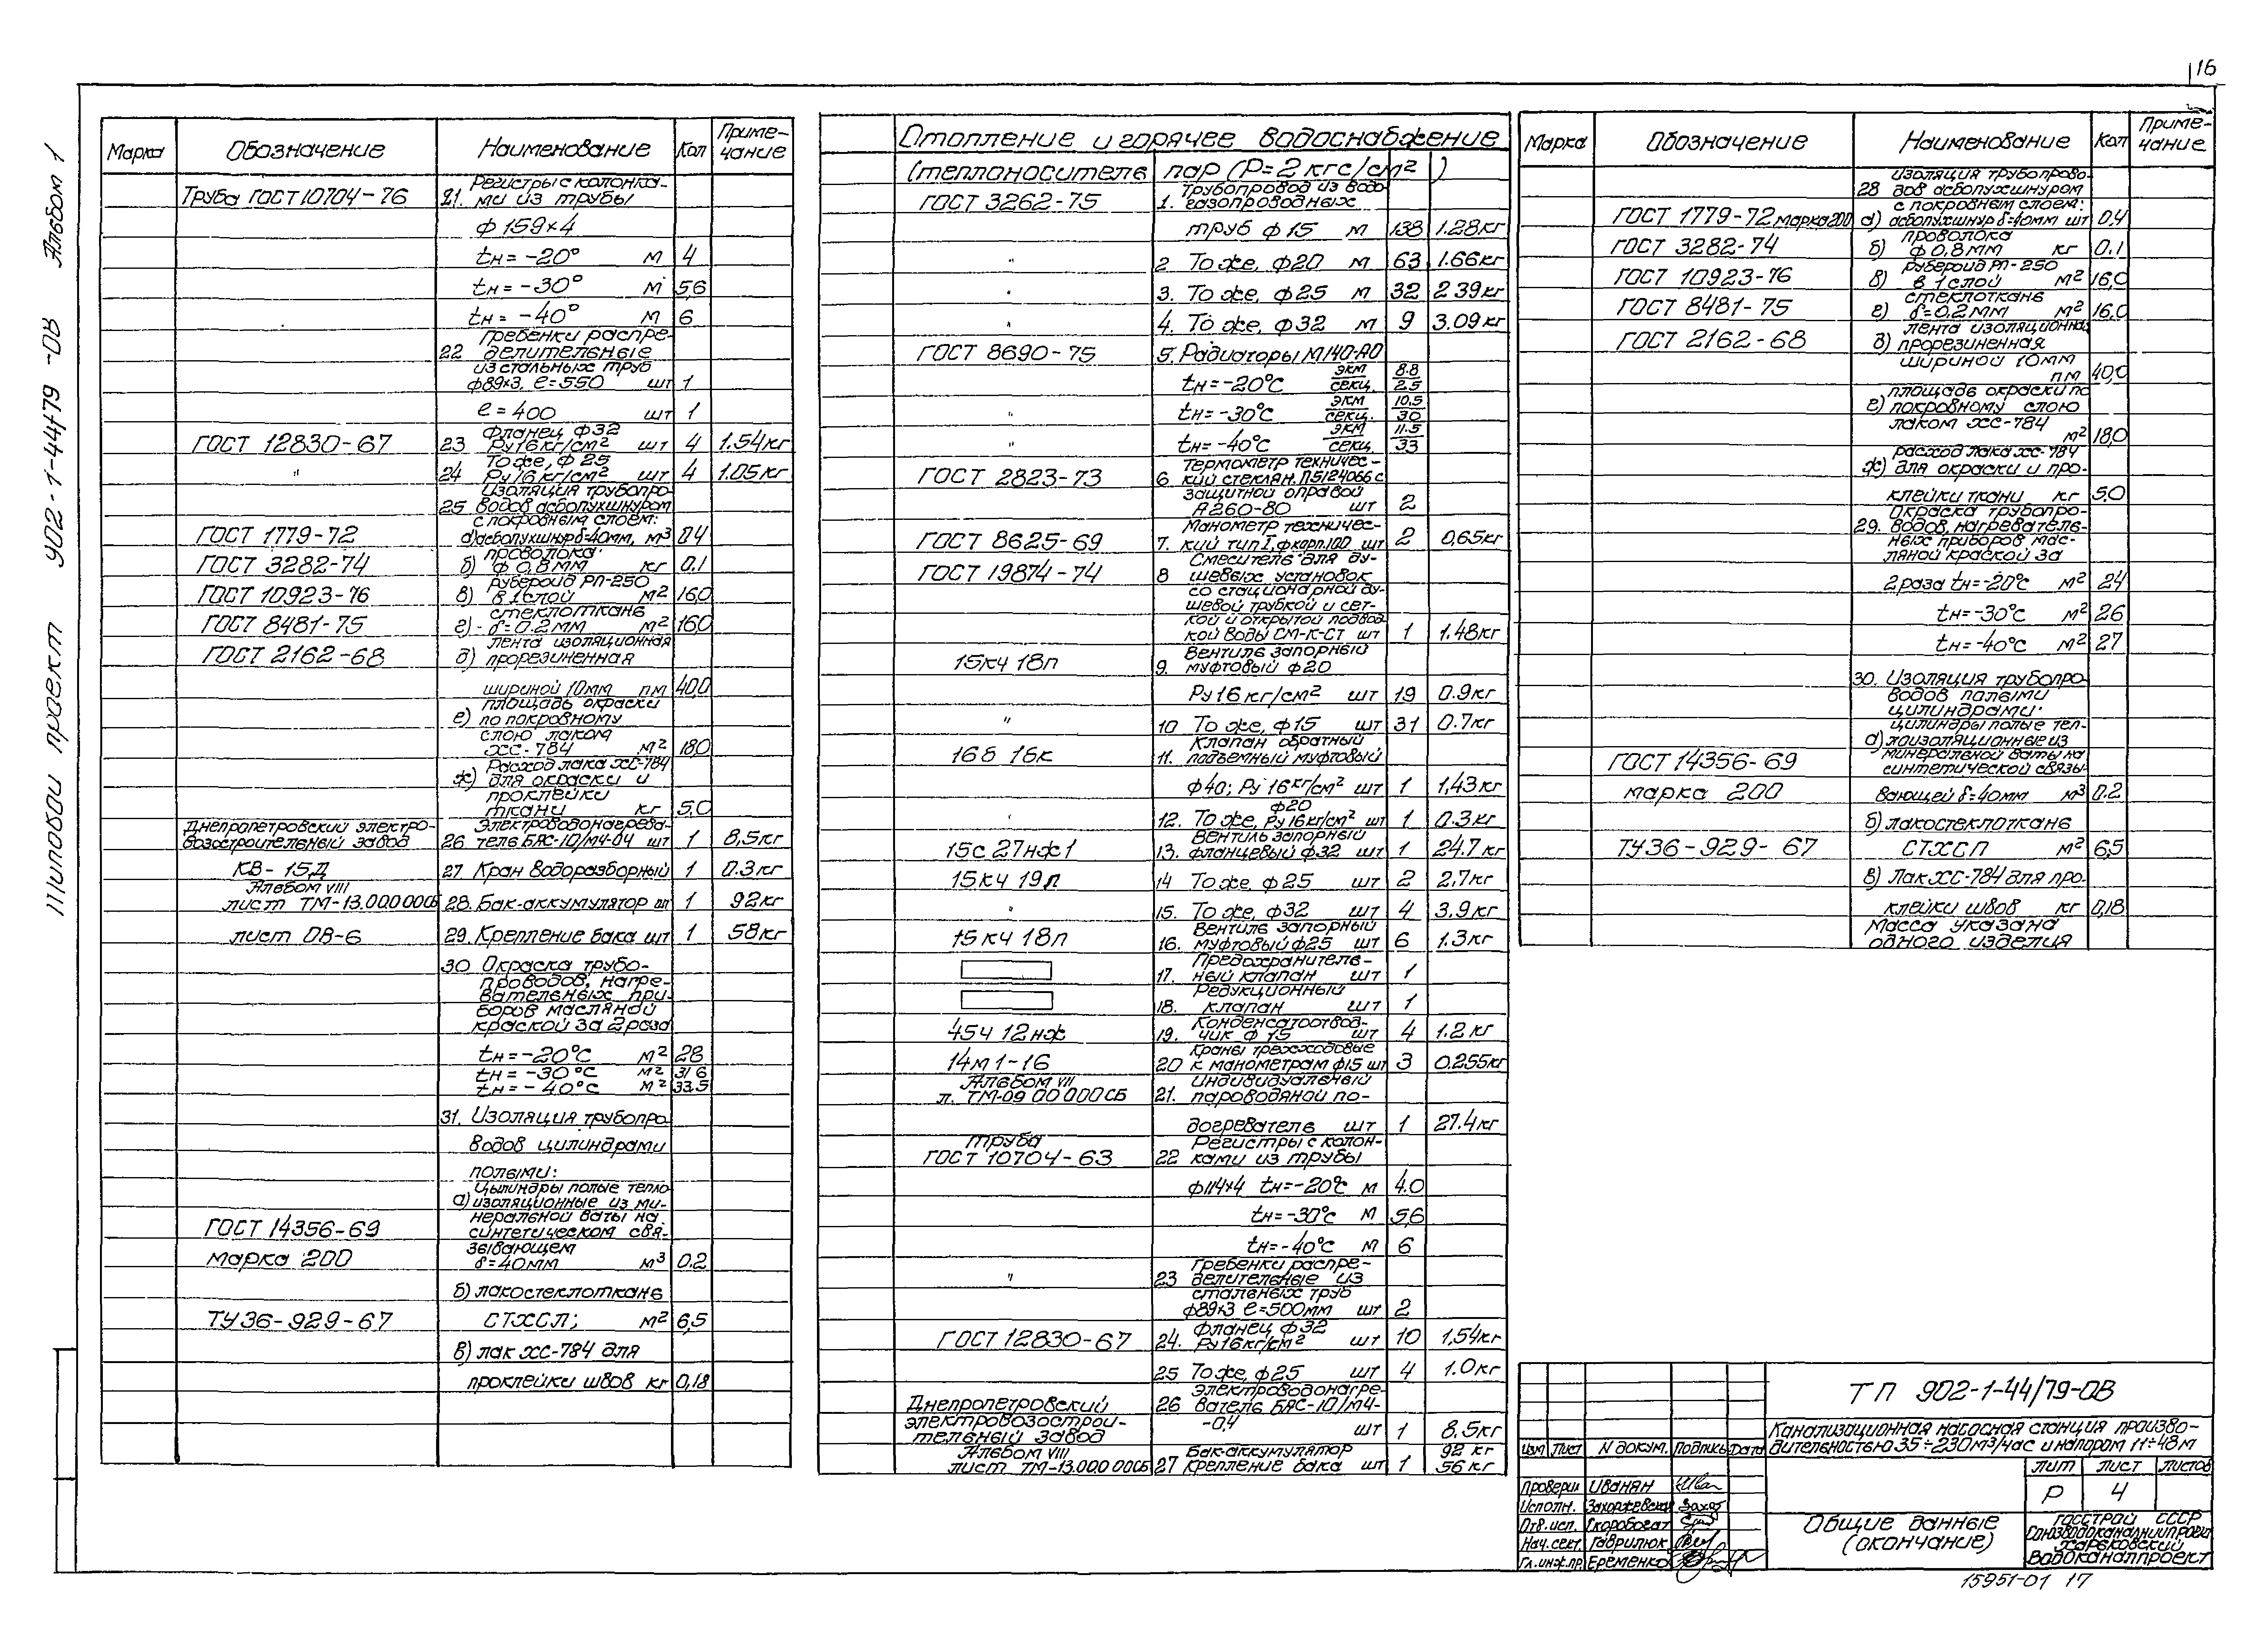 16
Альбом 1
Типовой проект 902-1-44/79 -ОВ
Марка Обозначение Наименование Кол Приме-
чание
Труба ГОСТ 10704-76 21. Регистры с колонка-
ми из трубы
ф 159×4
tн = -20° м 4
tн = -30° м 5,6
tн = -40° м 6
Гребенки распре-
22 делительные
из стальных труб
ф89×3, е=550 шт 1
е = 400 шт 1
Фланец ф32
ГОСТ 12830-67 23 Ру16 кг/см² шт 4 1.54кг
То же, ф 25
" 24 Ру16 кг/см² шт 4 1.05кг
Изоляция трубопро-
25 водов асбопухшнуром
с покровным слоем:
ГОСТ 1779-72 а) асбопухшнур δ=40мм, м³ 0.4
проволока
ГОСТ 3282-74 б) ф 0,8мм кг 0.1
рубероид РП-250
ГОСТ 10923-76 в) в 1 слой м² 16,0
стеклоткань
ГОСТ 8481-75 г) - δ=0.2мм м² 16,0
лента изоляционная
ГОСТ 2162-68 д) прорезиненная
шириной 10мм пм 40,0
площадь окраски
е) по покровному
слою лаком
ХС-784 м² 18,0
Расход лака ХС-784
ж) для окраски и
проклейки
ткани кг 5,0
Днепропетровский электро-
возостроительный завод 26 Электроводонагрева-
тель БАС-10/М4-04 шт 1 8,5кг
КВ-15Д 27. Кран водоразборный 1 0.3кг
Альбом VIII
лист ТМ-13.000 000СБ 28. Бак-аккумулятор шт 1 92кг
лист ОВ-6 29. Крепление бака шт 1 58кг
30 Окраска трубо-
проводов, нагре-
вательных при-
боров масляной
краской за 2 раза
tн = -20°С м² 28
tн = -30°С м² 31,6
tн = -40°С м² 33,5
31. Изоляция трубопро-
водов цилиндрами
полыми:
Цылиндры полые тепло
а) изоляционные из ми-
неральной ваты на
ГОСТ 14356-69 синтетическом свя-
зывающем
марка 200 δ=40мм м³ 0.2
б) лакостеклоткань
ТУ36-929-67 СТХСП; м² 6,5
в) лак ХС-784 для
проклейки швов кг 0,18
Отопление и горячее водоснабжение
(теплоноситель пар (Р=2 кгс/см² )
Трубопровод из водо
ГОСТ 3262-75 1. газопроводных
труб ф 15 м 138 1.28кг
" 2 То же, ф20 м 63 1.66кг
" 3. То же, ф25 м 32 2.39кг
" 4. То же, ф32 м 9 3.09кг
ГОСТ 8690-75 5. Радиаторы М140-АО
tн = -20°С экм/секц. 8.8/25
" tн = -30°С экм/секц. 10.5/30
" tн = -40°С экм/секц. 11.5/33
Термометр техничес-
ГОСТ 2823-73 6 кий стеклян. П5124066 с
защитной оправой
А260-80 шт 2
Манометр техничес-
ГОСТ 8625-69 7. кий тип I, ф корп.100 шт 2 0,65кг
Смеситель для ду-
ГОСТ 19874-74 8 шевых установок
со стационарной ду-
шевой трубкой и сет-
кой и открытой подвод
кой воды СМ-К-СТ шт 1 1.48кг
Вентиль запорный
15кч 18п 9. муфтовый ф20
Ру 16 кг/см² шт 19 0.9кг
" 10 То же, ф15 шт 31 0.7кг
Клапан обратный
16б 1бк 11. подъемный муфтовый
ф40; Ру 16кг/см² шт 1 1,43кг
ф20
" 12. То же, Ру16кг/см² шт 1 0.3кг
Вентиль запорный
15с 27нж1 13. фланцевый ф32 шт 1 24.7кг
15кч 19п 14 То же, ф25 шт 2 2,7кг
" 15. То же, ф32 шт 4 3.9кг
Вентиль запорный
15кч 18п 16. муфтовый ф25 шт 6 1.3кг
Предохранитель-
17. ный клапан шт 1
Редукционный
18. клапан шт 1
Конденсатоотвод-
45ч 12нж 19. чик ф 15 шт 4 1.2кг
Краны трехходовые
14М1-16 20 к манометрам ф15 шт 3 0.255кг
Альбом VIII Индивидуальный
л. ТМ-09 00 000СБ 21. пароводяной по-
догреватель шт 1 27.4кг
Труба Регистры с колон-
ГОСТ 10704-63 22 ками из трубы
ф114×4 tн=-20°С м 4.0
tн=-30°С м 5,6
tн=-40°С м 6
Гребенки распре-
" 23 делительные из
стальных труб
ф89×3 е=500мм шт 2
Фланец ф32
ГОСТ 12830-67 24. Ру16кг/см² шт 10 1,54кг
25 То же, ф25 шт 4 1.0кг
Электроводонагре-
Днепропетровский 26 ватель БАС-10/М4-
электровозострои- -0,4
тельный завод шт 1 8,5кг
Альбом VIII Бак-аккумулятор 92 кг
лист ТМ-13.000 000СБ 27 крепление бака шт 1 56кг
Марка Обозначение Наименование Кол Приме-
чание
изоляция трубопрово-
28 дов асбопухшнуром
с покровным слоем:
ГОСТ 1779-72 марка 200 а) асбопухшнур δ=40мм шт 0,4
проволока
ГОСТ 3282-74 б) ф 0,8мм кг 0.1
рубероид РП-250
ГОСТ 10923-76 в) в 1 слой м² 16,0
стеклоткань
ГОСТ 8481-75 г) δ=0,2мм м² 16,0
лента изоляционная
ГОСТ 2162-68 д) прорезиненная
шириной 10мм
пм 40,0
площадь окраски по
е) покровному слою
лаком ХС-784
м² 18,0
расход лака ХС-784
ж) для окраски и про-
клейки ткани кг 5,0
Окраска трубопро-
29. водов, нагреватель-
ных приборов мас-
ляной краской за
2 раза tн=-20°С м² 24
tн=-30°С м² 26
tн=-40°С м² 27
30. Изоляция трубопро-
водов полыми
цилиндрами:
цилиндры полые теп-
а) лоизоляционные из
ГОСТ 14356-69 минеральной ваты на
синтетической связы-
марка 200 вающей δ=40мм м³ 0.2
б) лакостеклоткань
ТУ36-929-67 СТХСП м² 6,5
в) Лак ХС-784 для про
клейки швов кг 0,18
Масса указана
одного изделия
ТП 902-1-44/79-ОВ
Канализационная насосная станция произво-
дительностью 35÷230м³/час и напором 11÷48м
Изм Лист N докум. Подпись Дата
Лит Лист Листов
Р 4
Проверил Иванян
Исполн. Захаржевская
Отв.исп. Скоробогат
Нач.сект. Гаврилюк
Гл.инж.пр. Еременко
Общие данные
(окончание)
Госстрой СССР
Союзводоканалниипроект
Харьковский
Водоканалпроект
15951-01 17